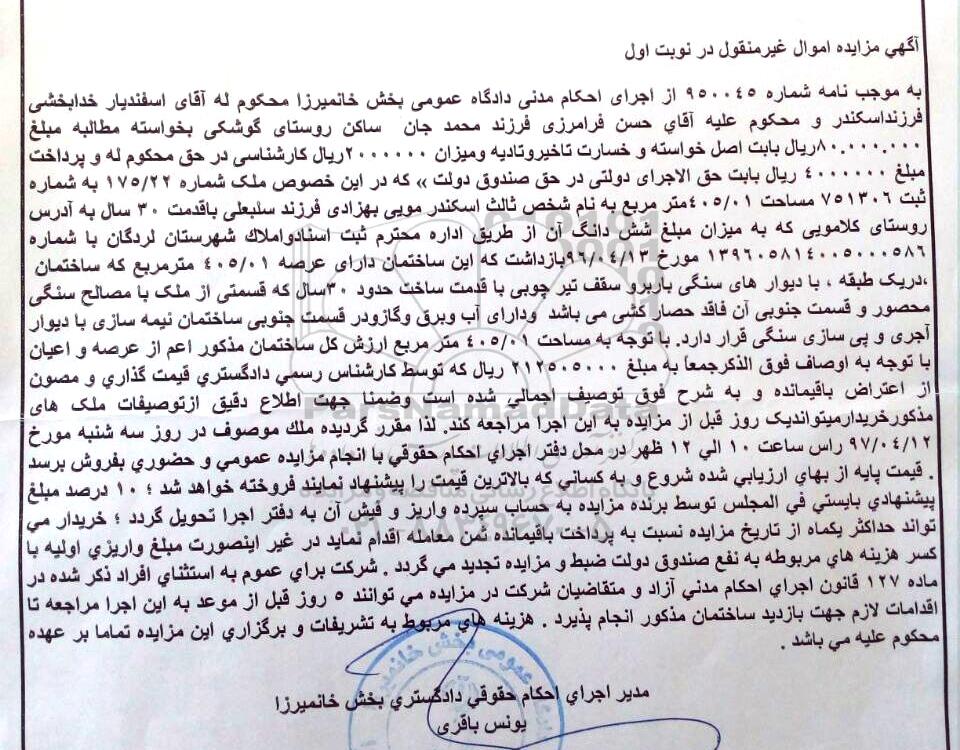 آگهي مزايده اموال غيرمنقول در نوبت اول
به موجب نامه شماره ۹۵۰۰۴۵ از اجرای احکام مدنی دادگاه عمومی بخش خانمیرزا محکوم له آقای اسفندیار خدابخشی
فرزنداسکندر و محکوم علیه آقاي حسن فرامرزی فرزند محمد جان ساکن روستای گوشکی بخواسته مطالبه مبلغ
۸۰.۰۰۰.۰۰۰ریال بابت اصل خواسته و خسارت تاخیروتادیه ومیزان ۲۰۰۰۰۰۰ریال کارشناسی در حق محکوم له و پرداخت
مبلغ ۴۰۰۰۰۰۰ ریال بابت حق الاجرای دولتی در حق صندوق دولت » که در این خصوص ملک شماره ۱۷۵/۲۲ به شماره
ثبت ۷۵۱۳۰۶ مساحت ۴۰۵/۰۱متر مربع به نام شخص ثالث اسکندر مویی بهزادی فرزند سلبعلی باقدمت ۳۰ سال به آدرس
روستای کلامویی که به میزان مبلغ شش دانگ آن از طریق اداره محترم ثبت اسنادواملاك شهرستان لردگان با شماره
۱۳۹۶۰۵۸۱۴۰۰۵۰۰۰۵۸۶ مورخ ۹۶/۰۴/۱۳بازداشت که این ساختمان دارای عرصه ۴۰۵/۰۱ مترمربع که ساختمان
،دریک طبقه ، با دیوار های سنگی باربرو سقف تیر چوبی با قدمت ساخت حدود ۳۰سال که قسمتی از ملک با مصالح سنگی
محصور و قسمت جنوبی آن فاقد حصار کشی می باشد ودارای آب وبرق وگازودر قسمت جنوبی ساختمان نیمه سازی با دیوار
آجری و پی سازی سنگی قرار دارد. با توجه به مساحت ۴۰۵/۰۱ متر مربع ارزش کل ساختمان مذکور اعم از عرصه و اعیان
با توجه به اوصاف فوق الذکرجمعاً به مبلغ ۲۱۲۵۰۵۰۰۰ ریال که توسط كارشناس رسمي دادگستري قیمت گذاري و مصون
از اعتراض باقیمانده و به شرح فوق توصیف اجمالي شده است وضمنا جهت اطلاع دقیق ازتوصیفات ملک های
مذکورخریدارمیتواندیک روز قبل از مزایده به این اجرا مراجعه کند. لذا مقرر گردیده ملك موصوف در روز سه شنبه مورخ
۹۷/۰۴/۱۲ راس ساعت ۱۰ الي ۱۲ ظهر در محل دفتر اجراي احکام حقوقي با انجام مزایده عمومي و حضوري بفروش برسد
. قیمت پایه از بهاي ارزیابي شده شروع و به کساني که بالاترین قیمت را پیشنهاد نمایند فروخته خواهد شد ؛ ۱۰ درصد مبلغ
پیشنهادي بایستي في المجلس توسط برنده مزایده به حساب سپرده واریز و فیش آن به دفتر اجرا تحویل گردد ؛ خریدار مي
تواند حداکثر یکماه از تاریخ مزایده نسبت به پرداخت باقیمانده ثمن معامله اقدام نماید در غیر اینصورت مبلغ واریزي اولیه با
کسر هزینه هاي مربوطه به نفع صندوق دولت ضبط و مزایده تجدید مي گردد . شرکت براي عموم به استثناي افراد ذکر شده در
ماده ۱۲۷ قانون اجراي احکام مدني آزاد و متقاضیان شرکت در مزایده مي توانند ۵ روز قبل از موعد به این اجرا مراجعه تا
اقدامات لازم جهت بازدید ساختمان مذکور انجام پذیرد . هزینه هاي مربوط به تشریفات و برگزاري این مزایده تماما بر عهده
محکوم علیه مي باشد .
مدیر اجراي احکام حقوقي دادگستري بخش خانمیرزا
یونس باقری
ParsNamadData
پایگاه اطلاع رسانی مناقصه و مزایده